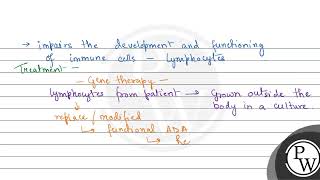 → impairs the development and functioning
of immune cells - lymphocytes
Treatment -
- Gene therapy -
lymphocytes from patient → Grown outside the
body in a culture.
replace / modified
↳ functional ADA
↳ he
PW